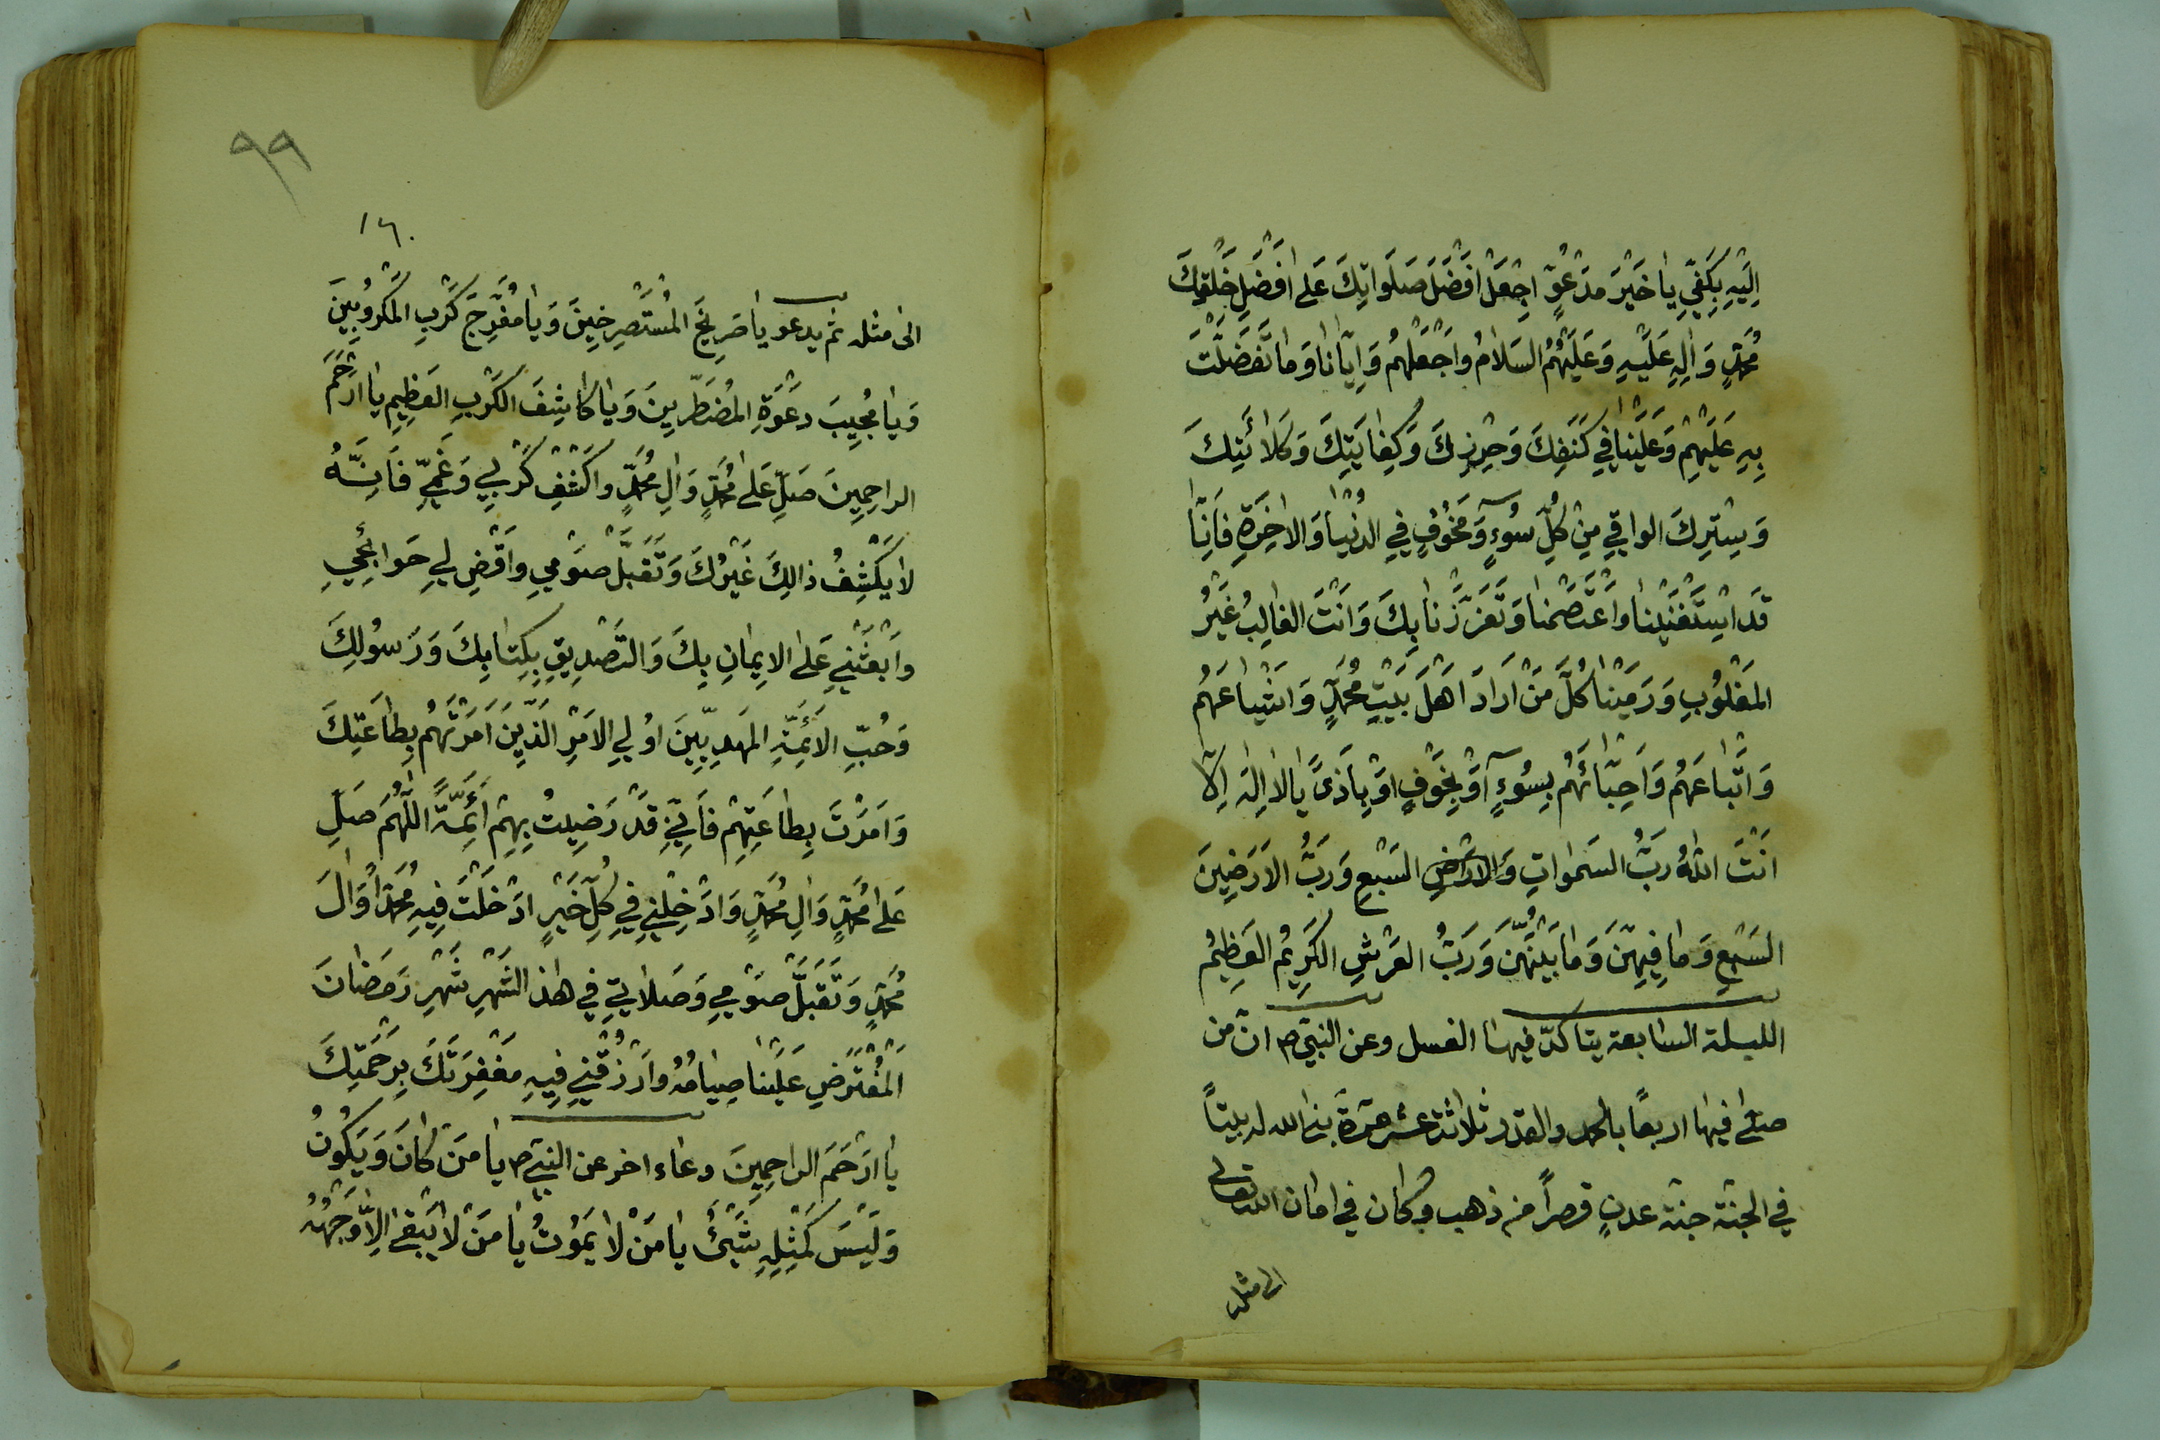 اِلَيْهِ بِكَفّي يا خَيْرَ مَدْعُوٍّ اجْعَلْ اَفْضَلَ صَلَواتِكَ عَلى اَفْضَلِ خَلْقِكَ
مُحَمَّدٍ وَالِهِ عَلَيْهِ وَعَلَيْهِمُ السَلامُ واجْعَلْهُمْ وَاِيّانا وَما تَفَضَّلْتَ
بِهِ عَلَيْهِمْ وَعَلَيْنا في كَنَفِكَ وَحِرْزِكَ وَكِفايَتِكَ وَكَلائَتِكَ
وَسِتْرِكَ الواقي مِنْ كُلِّ سُوءٍ وَمَخُوفٍ فِي الدُنْيا وَالاخِرَةِ فَاِنّا
قَد اسْتَغْنَيْنا واعْتَصَمْنا وَتَعَزَّزْنا بِكَ وَاَنْتَ الغالِبُ غَيْرُ
المَغْلُوبِ وَرَمَيْنا كُلَّ مَنْ اَرادَ اَهْلَ بَيْتِ مُحَمَّدٍ وَاَشْياعَهُمْ
وَاَتْباعَهُمْ وَاَحِبّائَهُمْ بِسُوءٍ اَوْ بِخَوْفٍ اَوْ بِاَذىً يا لا اِلهَ اِلّا
اَنْتَ اللهُ رَبُّ السَمواتِ السَبْعِ وَرَبُّ الاَرَضِينَ
السَبْعِ وَما فِيهِنَّ وَما بَيْنَهُنَّ وَرَبُّ العَرْشِ الكَرِيمُ العَظِيمُ
الليلة السابعة يتاكدّ فيها الغسل وعن النبيّ ص انّ من
صلّى فيها اربعاً بالحمد والقدر ثلاثة عشر مرّة بنى الله له بيتاً
في الجنّة جنّة عدنٍ قصراً من ذهب وكان في امان الله تعالى
الى مثله
٩٩
١٦٠
الى مثله ثم يدعو يا صَرِيخَ المُسْتَصْرِخِينَ وَيا مُفَرِّجَ كَرْبِ المَكْرُوبِينَ
وَيا مُجِيبَ دَعْوَةِ المُضْطَرّينَ وَيا كاشِفَ الكَرْبِ العَظِيمِ يا اَرْحَمَ
الراحِمِينَ صَلِّ عَلى مُحَمَّدٍ وَالِ مُحَمَّدٍ واكْشِفْ كَرْبي وَغَمّي فَاِنَّهُ
لا يَكْشِفُ ذالِكَ غَيْرُكَ وَتَقَبَّلْ صَوْمي واقْضِ لي حَوائِجي
وابْعَثْني عَلى الاِيمانِ بِكَ وَالتَصْدِيقِ بِكِتابِكَ وَرَسُولِكَ
وَحُبِّ الاَئِمَّةِ المَهْدِيّينَ اُولي الاَمْرِ الَذِينَ اَمَرْتَهُمْ بِطاعَتِكَ
وَاَمَرْتَ بِطاعَتِهِمْ فَاِنّي قَدْ رَضِيتُ بِهِمْ اَئِمَّةً اَللّهُمَّ صَلِّ
عَلى مُحَمَّدٍ وَالِ مُحَمَّدٍ وَاَدْخِلْني في كُلِّ خَيْرٍ اَدْخَلْتَ فِيهِ مُحَمَّداً وَالَ
مُحَمَّدٍ وَتَقَبَّلْ صَوْمي وَصَلاتي في هذا الشَهْرِ شَهْرِ رَمَضانَ
المُفْتَرَضِ عَلَيْنا صِيامُهُ وارْزُقْني فِيهِ مَغْفِرَتَكَ بِرَحْمَتِكَ
يا اَرْحَمَ الراحِمِينَ دعاء اخر عن النبيّ ص يا مَنْ كانَ وَيَكُونُ
وَلَيْسَ كَمِثْلِهِ شَيْئٌ يا مَنْ لا يَمُوتُ يا مَنْ لا يَبْقى اِلّا وَجْهُهُ